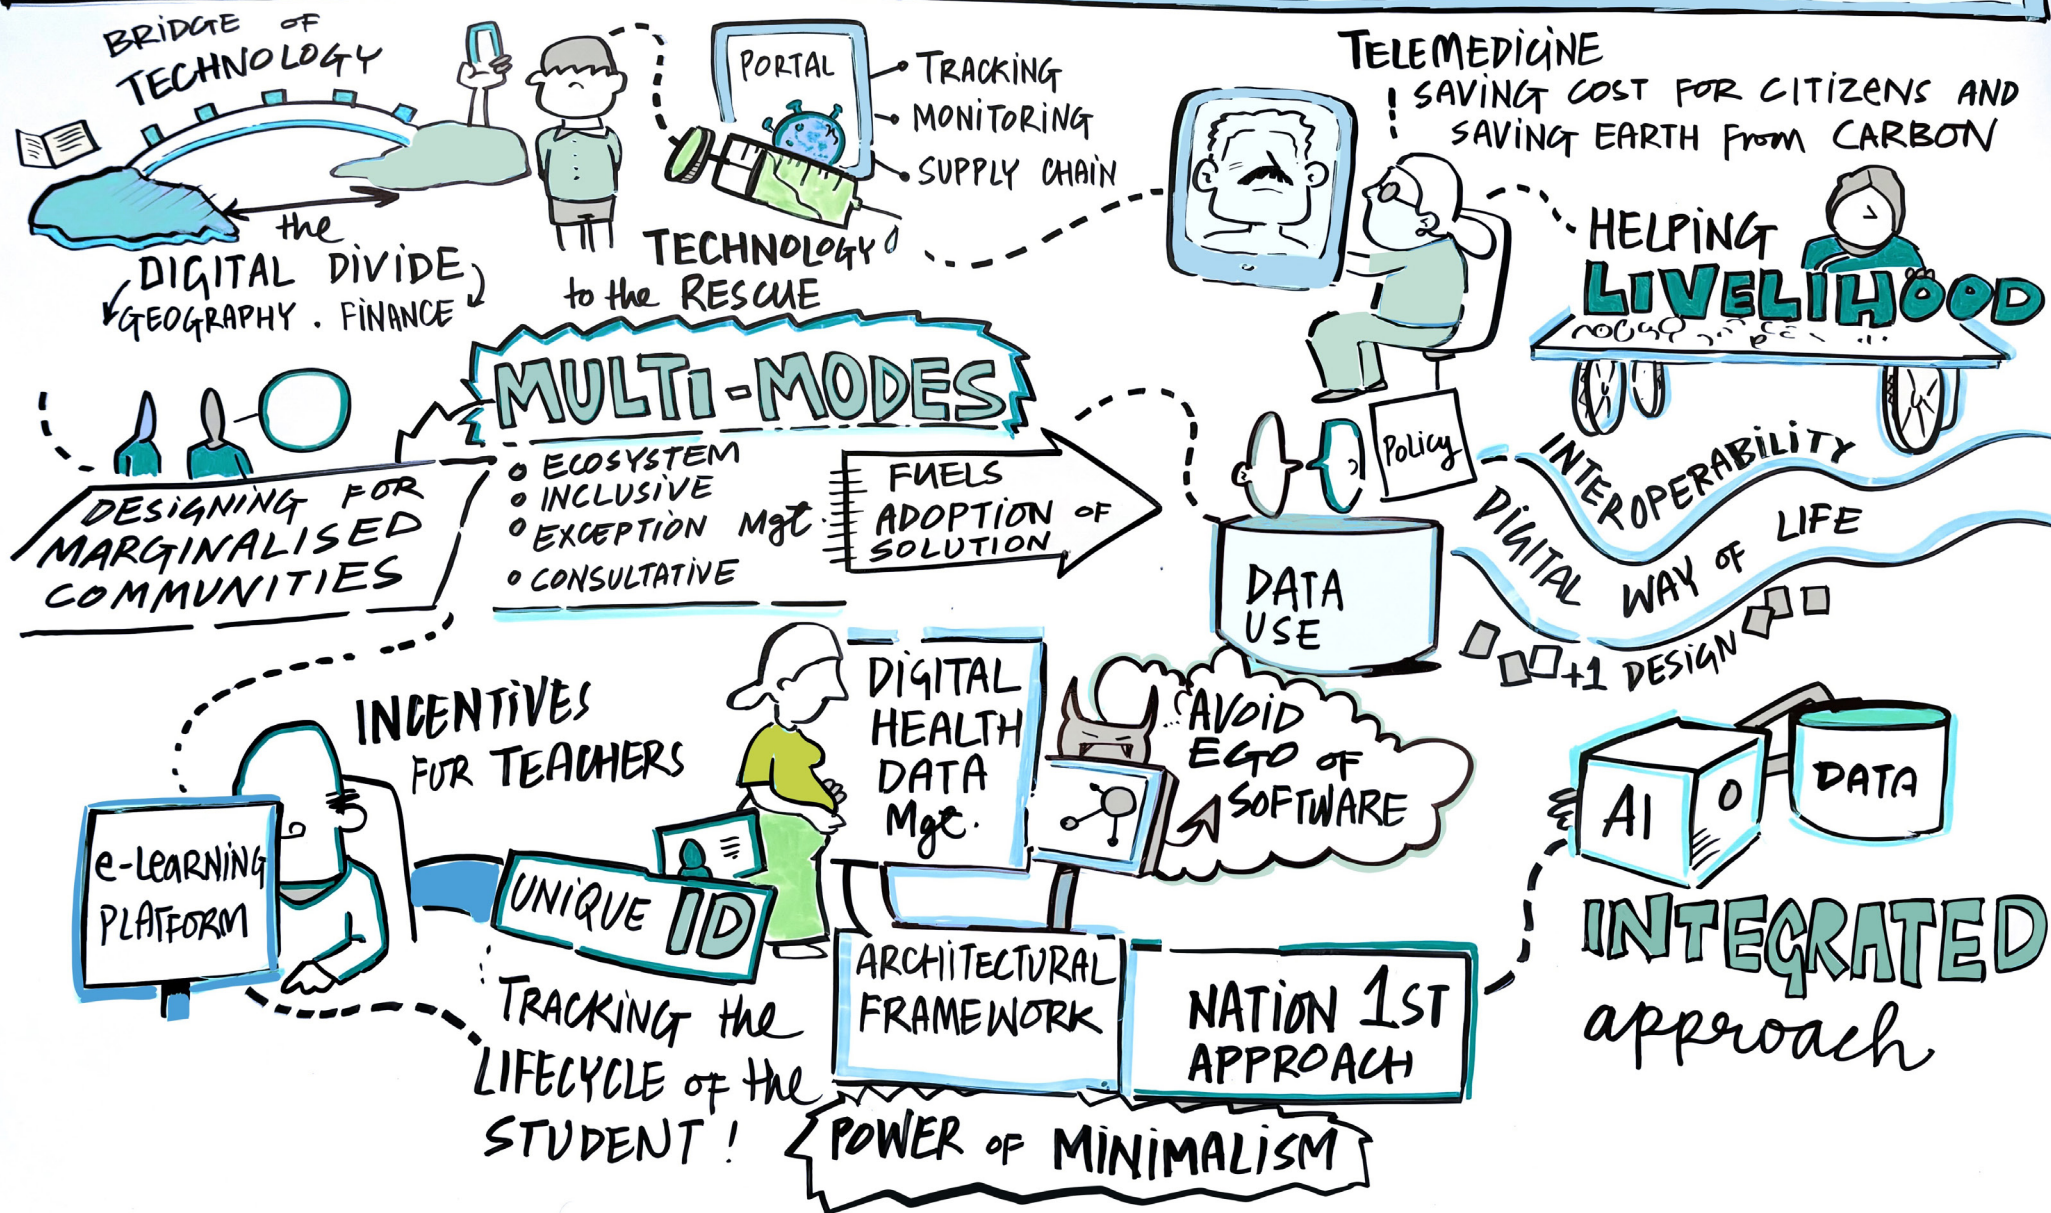 BRIDGE OF
TECHNOLOGY
the
DIGITAL DIVIDE
GEOGRAPHY . FINANCE
PORTAL
TRACKING
MONITORING
SUPPLY CHAIN
TECHNOLOGY
to the RESCUE
TELEMEDICINE
SAVING COST FOR CITIZENS AND
SAVING EARTH From CARBON
HELPING
LIVELIHOOD
DESIGNING FOR
MARGINALISED
COMMUNITIES
MULTI-MODES
• ECOSYSTEM
• INCLUSIVE
• EXCEPTION Mgt.
• CONSULTATIVE
FUELS
ADOPTION OF
SOLUTION
Policy
DATA
USE
INTEROPERABILITY
DIGITAL WAY OF LIFE
+1 DESIGN
INCENTIVES
FOR TEACHERS
e-LEARNING
PLATFORM
UNIQUE ID
TRACKING the
LIFECYCLE of the
STUDENT!
DIGITAL
HEALTH
DATA
Mgt.
AVOID
EGO OF
SOFTWARE
ARCHITECTURAL
FRAMEWORK
NATION 1ST
APPROACH
POWER OF MINIMALISM
AI
DATA
INTEGRATED
approach